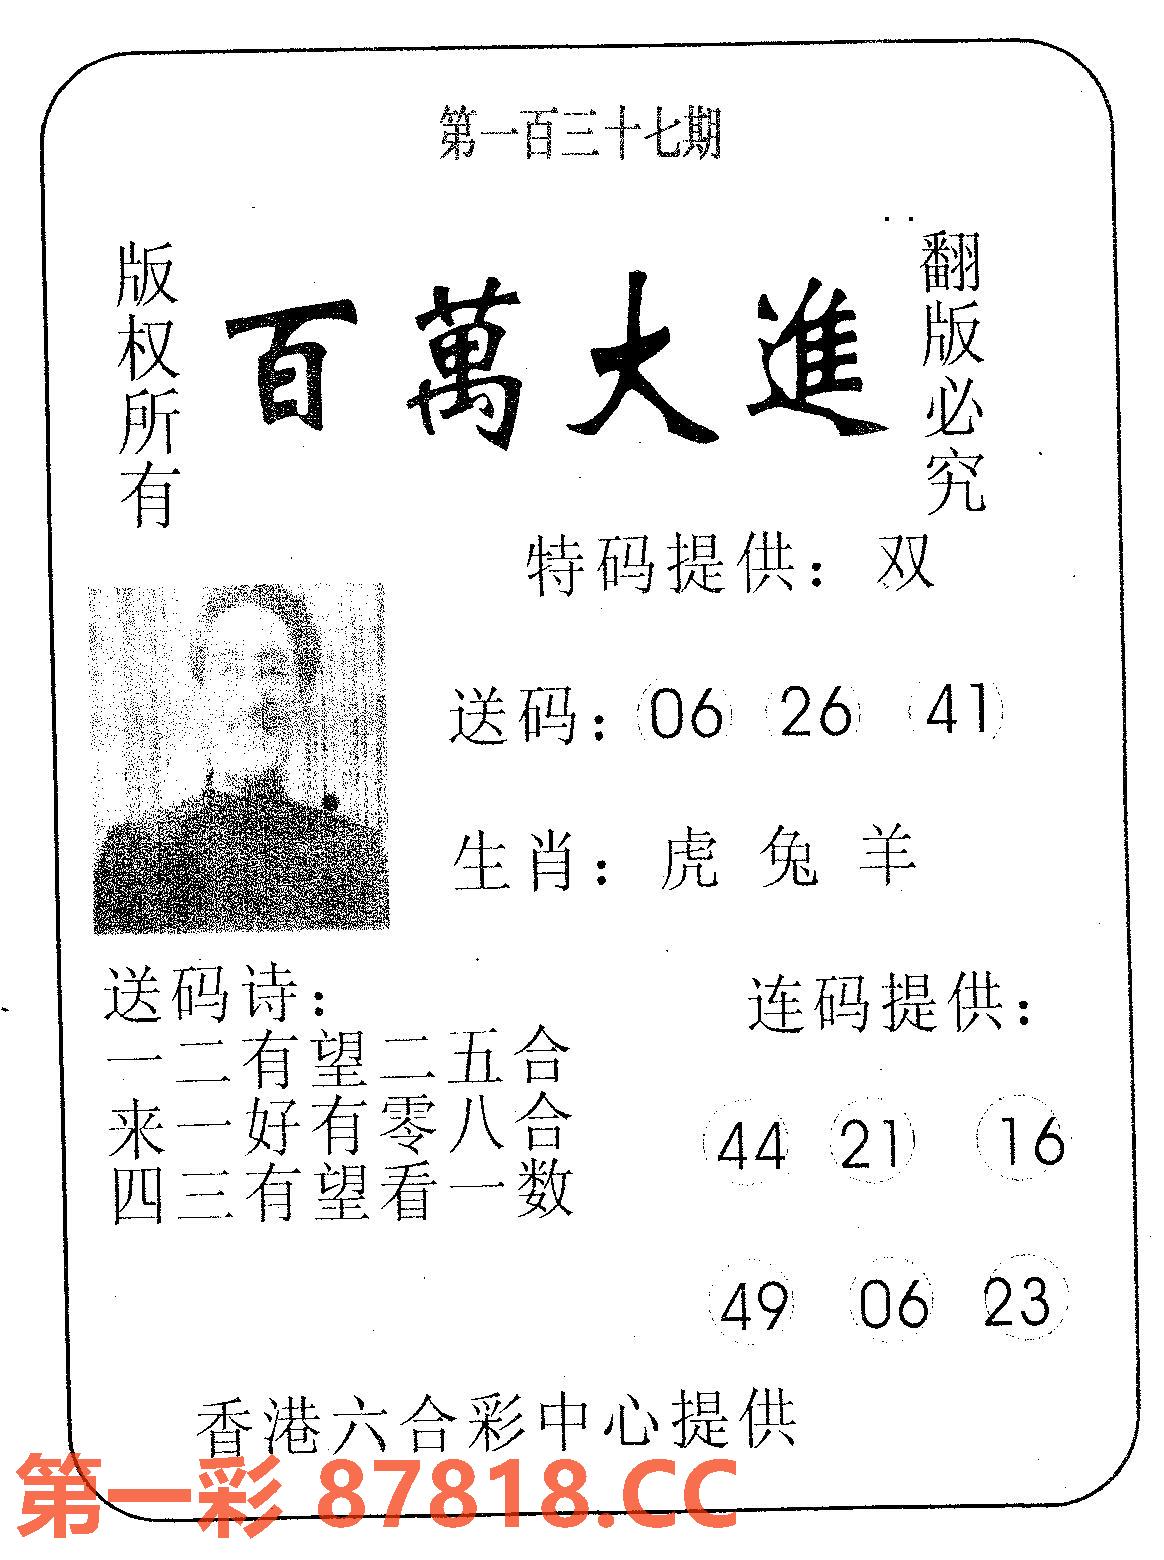 第一百三十七期
版权所有
百萬大進
翻版必究
特码提供：双
送码：06 26 41
生肖：虎 兔 羊
送码诗：
一二有望二五合
来一好有零八合
四三有望看一数
连码提供：
44 21 16
49 06 23
香港六合彩中心提供
第一彩 87818.CC